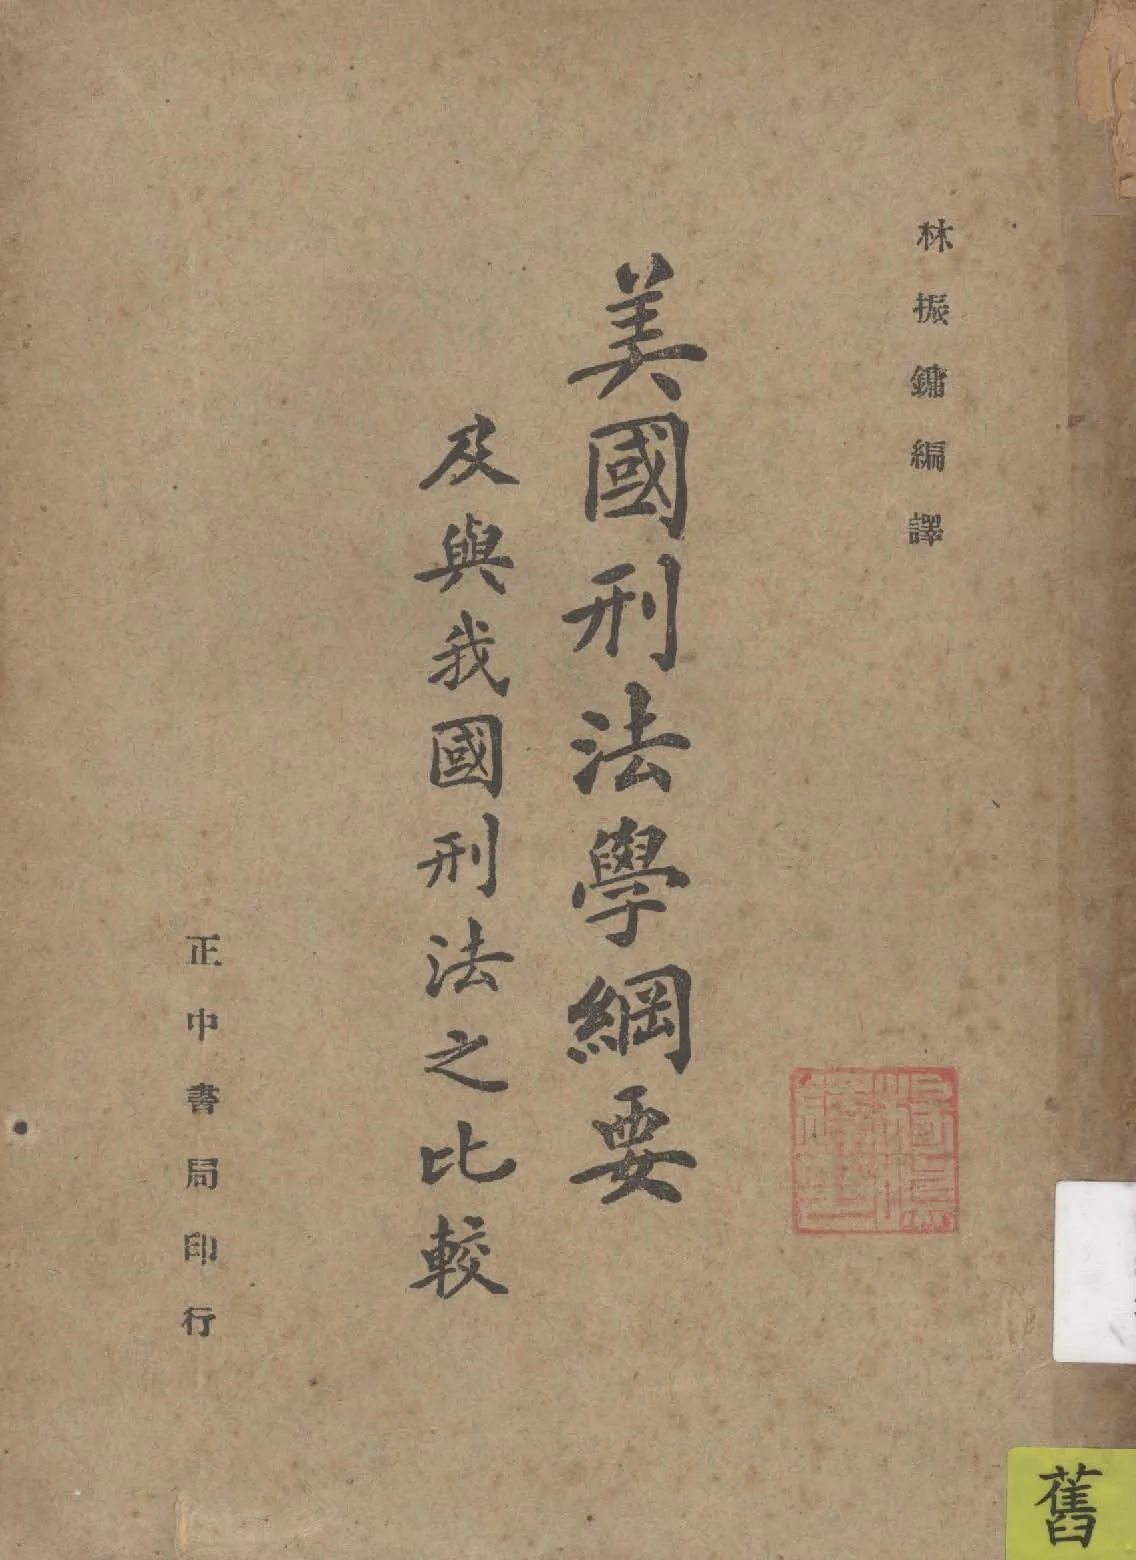 林振鏞編譯
美國刑法學綱要
及與我國刑法之比較
正中書局印行
舊